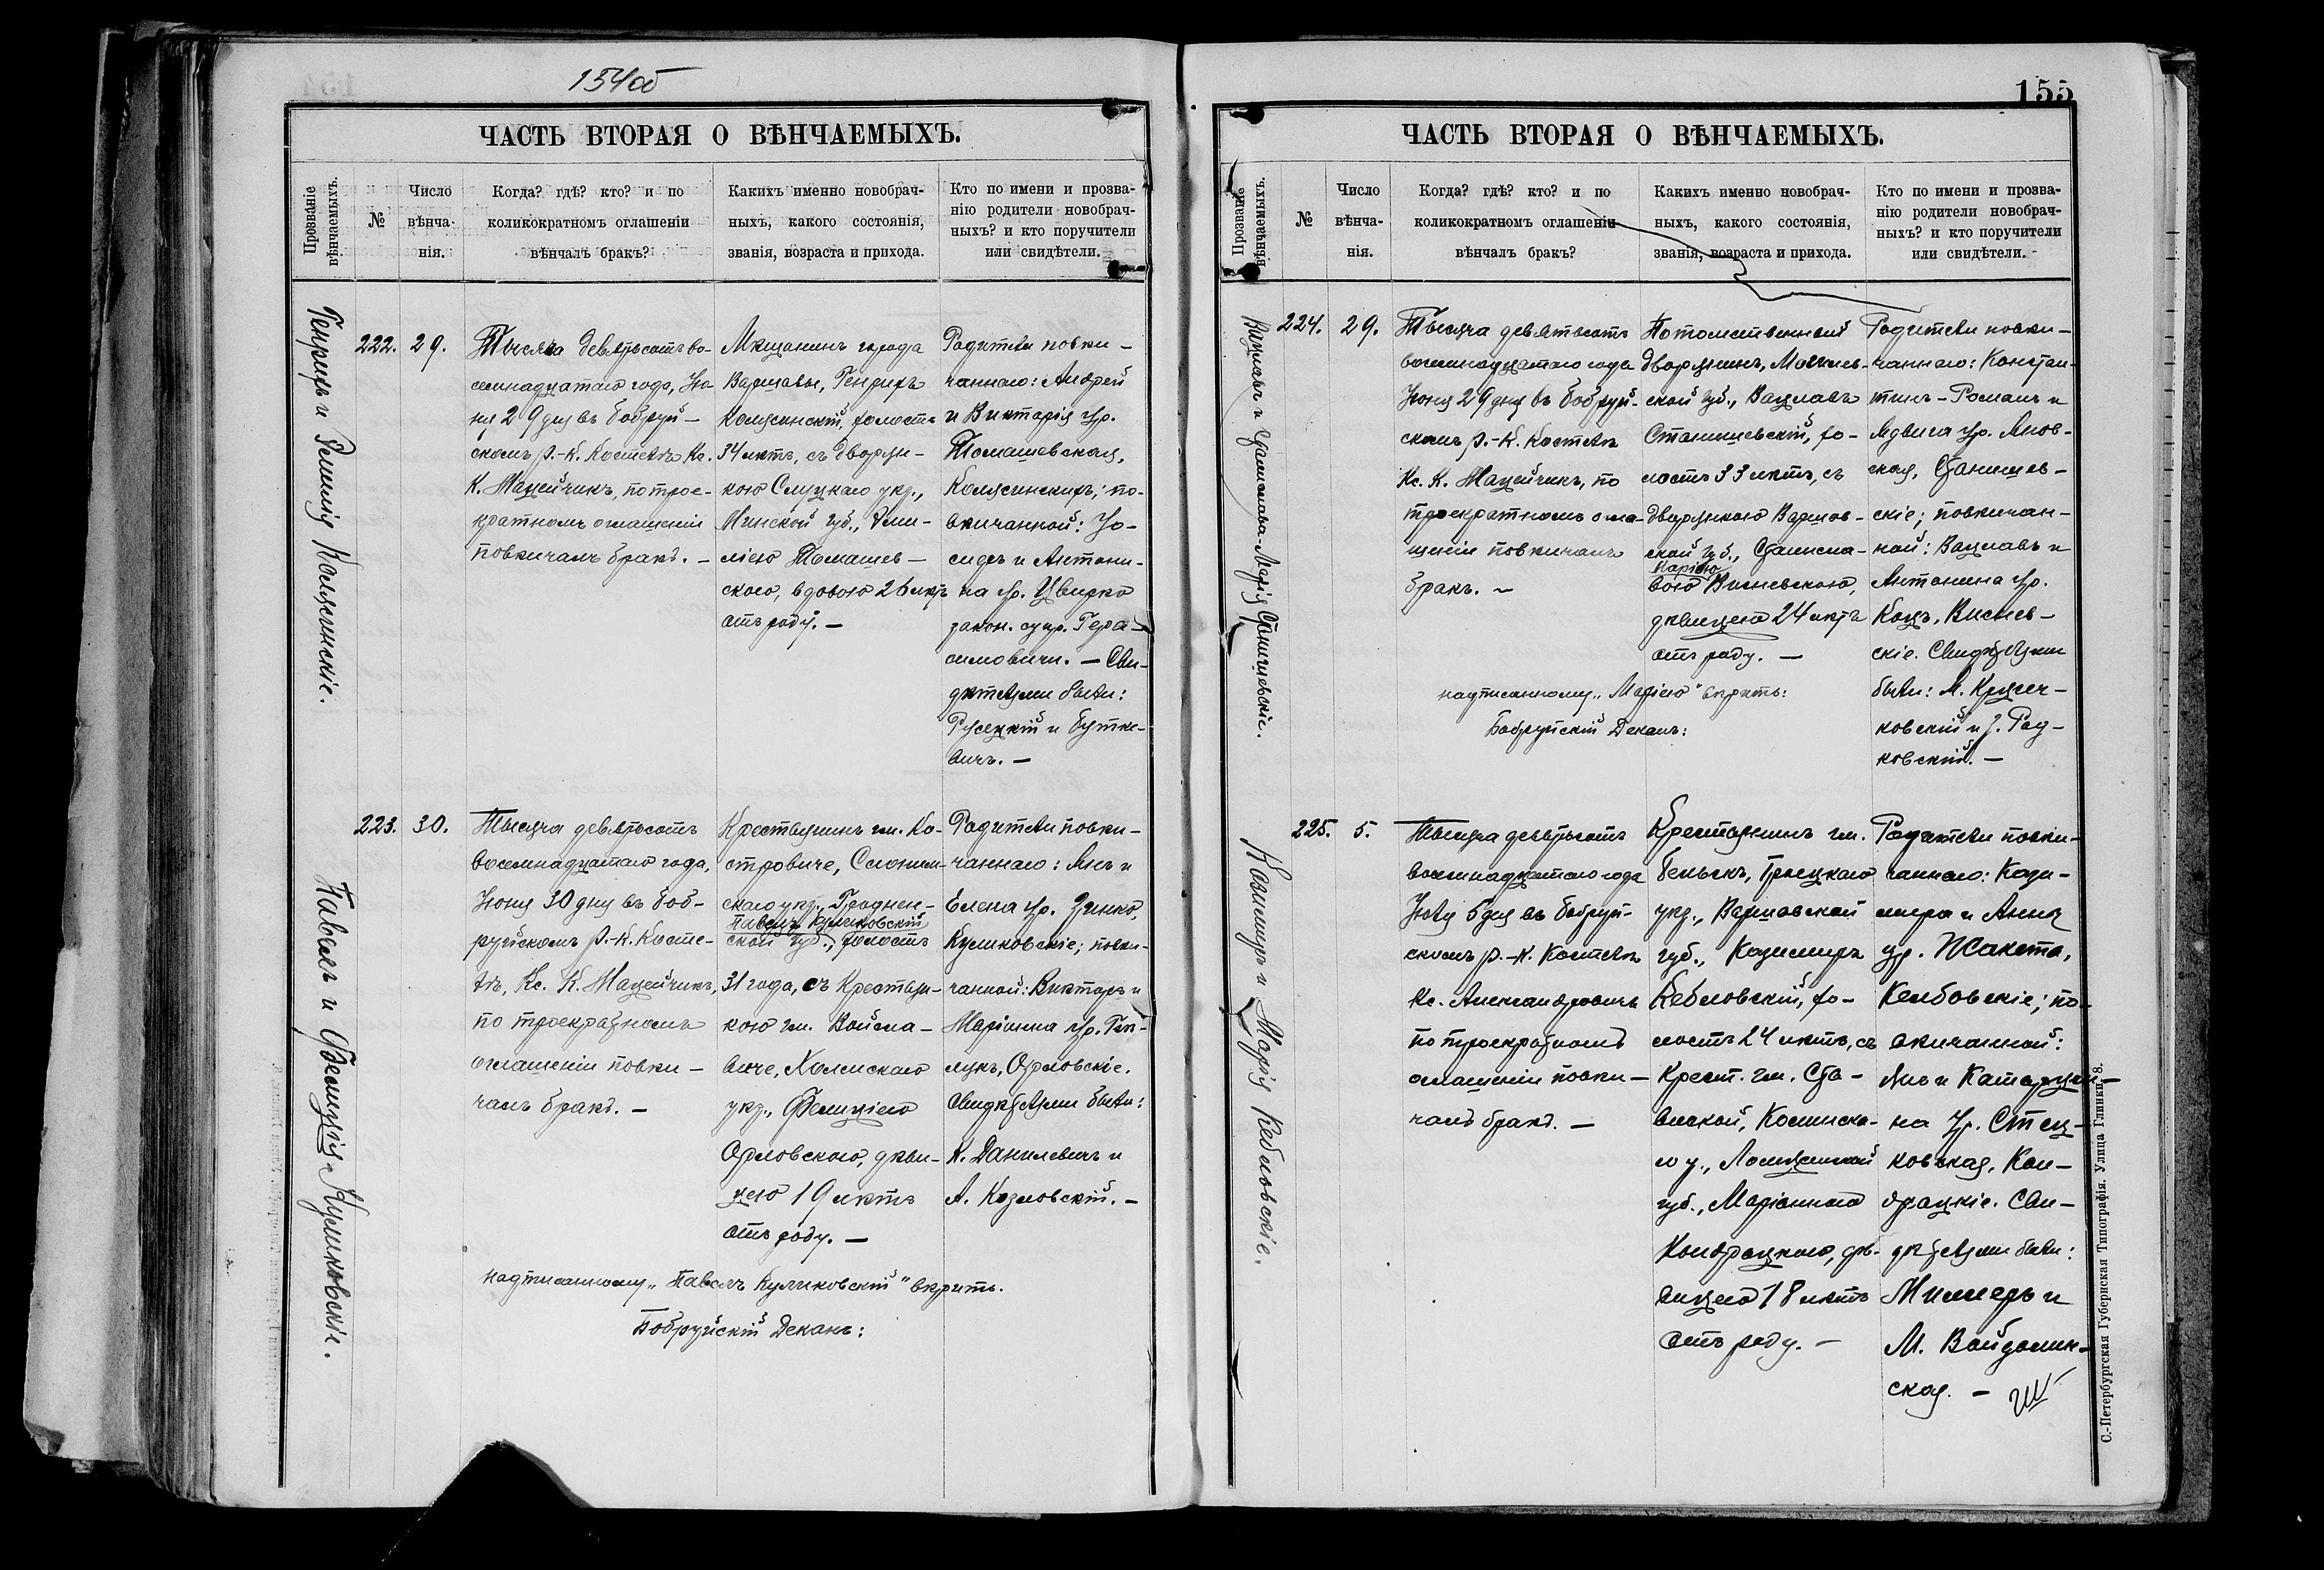 154об
ЧАСТЬ ВТОРАЯ О ВѢНЧАЕМЫХЪ.
Прозваніе вѣнчаемыхъ.
№
Число вѣнча-нія.
Когда? гдѣ? кто? и по
коликократномъ оглашеніи
вѣнчалъ бракъ?
Какихъ именно новобрач-
ныхъ, какого состоянія,
званія, возраста и прихода.
Кто по имени и прозва-
нію родители новобрач-
ныхъ? и кто поручители
или свидѣтели.
Генрихъ и Эмилія Колусинскіе.
222. 29.
Тысяча девятьсотъ во-
семнадцатаго года, Ію-
ня 29 дня въ Бобруй-
скомъ р.-к. Костелѣ Кс.
К. Мацейчикъ, по трое-
кратномъ оглашеніи
повѣнчалъ бракъ. —
Мѣщанинъ города
Варшавы, Генрихъ
холостъ
34 лѣтъ, съ дворян-
кою Слуцкаго уѣз.,
Минской губ., Эми-
ліею Томашев-
скою, вдовою 26 лѣтъ
отъ роду. —
Родители повѣн-
чаннаго: Андрей
и Викторія ур.
Томашевская,
по-
вѣнчанной: Іо-
сифъ и Антони-
на ур. Цвирко
закон. супр. Гера-
симовичи. — Сви-
дѣтелями были:
Русецкій и Бутке-
вичъ. —
Павелъ и Фелиція Куликовскіе.
223. 30.
Тысяча девятьсотъ
восемнадцатаго года,
Іюня 30 дня въ Боб-
руйскомъ р.-к. Косте-
лѣ, Кс. К. Мацейчикъ,
по троекратномъ
оглашеніи повѣн-
чалъ бракъ. —
Крестьянинъ гм. Ко-
стровиче, Слоним-
скаго уѣз., Гроднен-
Павелъ Куликовскій
ской губ., холостъ
31 года, съ Крестьян-
кою гм. Войсла-
виче, Холмскаго
уѣз., Фелиціею
Орловскою, дѣви-
цею 19 лѣтъ
отъ роду. —
Родители повѣн-
чаннаго: Янъ и
Елена ур.
Куликовскіе; повѣн-
чанной: Викторъ и
Маріанна ур.
Орловскіе.
Свидѣтелями были:
К. Данилевичъ и
А. Козловскій. —
надписанному „Павелъ Куликовскій" вѣрить.
Бобруйскій Деканъ:
155
ЧАСТЬ ВТОРАЯ О ВѢНЧАЕМЫХЪ.
Прозваніе вѣнчаемыхъ.
№
Число вѣнча-нія.
Когда? гдѣ? кто? и по
коликократномъ оглашеніи
вѣнчалъ бракъ?
Какихъ именно новобрач-
ныхъ, какого состоянія,
званія, возраста и прихода.
Кто по имени и прозва-
нію родители новобрач-
ныхъ? и кто поручители
или свидѣтели.
Вацлавъ и Станислава-Марія Станишевскіе.
224. 29.
Тысяча девятьсотъ
восемнадцатаго года
Іюня 29 дня въ Бобруй-
скомъ р.-К. Костелѣ
Кс. К. Мацейчикъ, по
троекратномъ огла-
шеніи повѣнчалъ
бракъ. —
Потомственный
дворянинъ, Могилев-
ской губ., Вацлавъ
Станишевскій, хо-
лостъ 33 лѣтъ, съ
дворянкою Варшав-
ской губ., Станисла-
Маріею
вою Висневскою,
дѣвицею 24 лѣтъ
отъ роду. —
Родители повѣн-
чаннаго: Констан-
тинъ-Романъ и
Ядвига ур. Янов-
ская, Станишев-
скіе; повѣнчан-
ной: Вацлавъ и
Антонина ур.
Коцъ, Виснев-
скіе. Свидѣтелями
были: А.
ковскій и І. Рад-
ковскій. —
надписанному „Маріею" вѣрить:
Бобруйскій Деканъ:
Казимиръ и Марія Кебловскіе.
225. 5.
Тысяча девятьсотъ
восемнадцатаго года
Іюля 5 дня въ Бобруй-
скомъ р.-к. Костелѣ
Кс. Александровичъ
по троекратномъ
оглашеніи повѣн-
чалъ бракъ. —
Крестьянинъ гм.
Гроецкаго
уѣз., Варшавской
губ., Казимиръ
Кебловскій, хо-
лостъ 24 лѣтъ, съ
Крест. гм. Ста-
виской, Колнска-
го у., Ломжинской
губ., Маріанною
Кондрацкою, дѣ-
вицею 18 лѣтъ
отъ роду. —
Родители повѣн-
чаннаго: Кази-
мира и Анна
ур.
по-
вѣнчанной:
Янъ и Катаржи-
на ур.
ковская, Кон-
драцкіе. Сви-
дѣтелями были:
Миллеръ и
М. Войдалин-
ская. —
С.-Петербургская Губернская Типографія. Улица Глинки, 8.